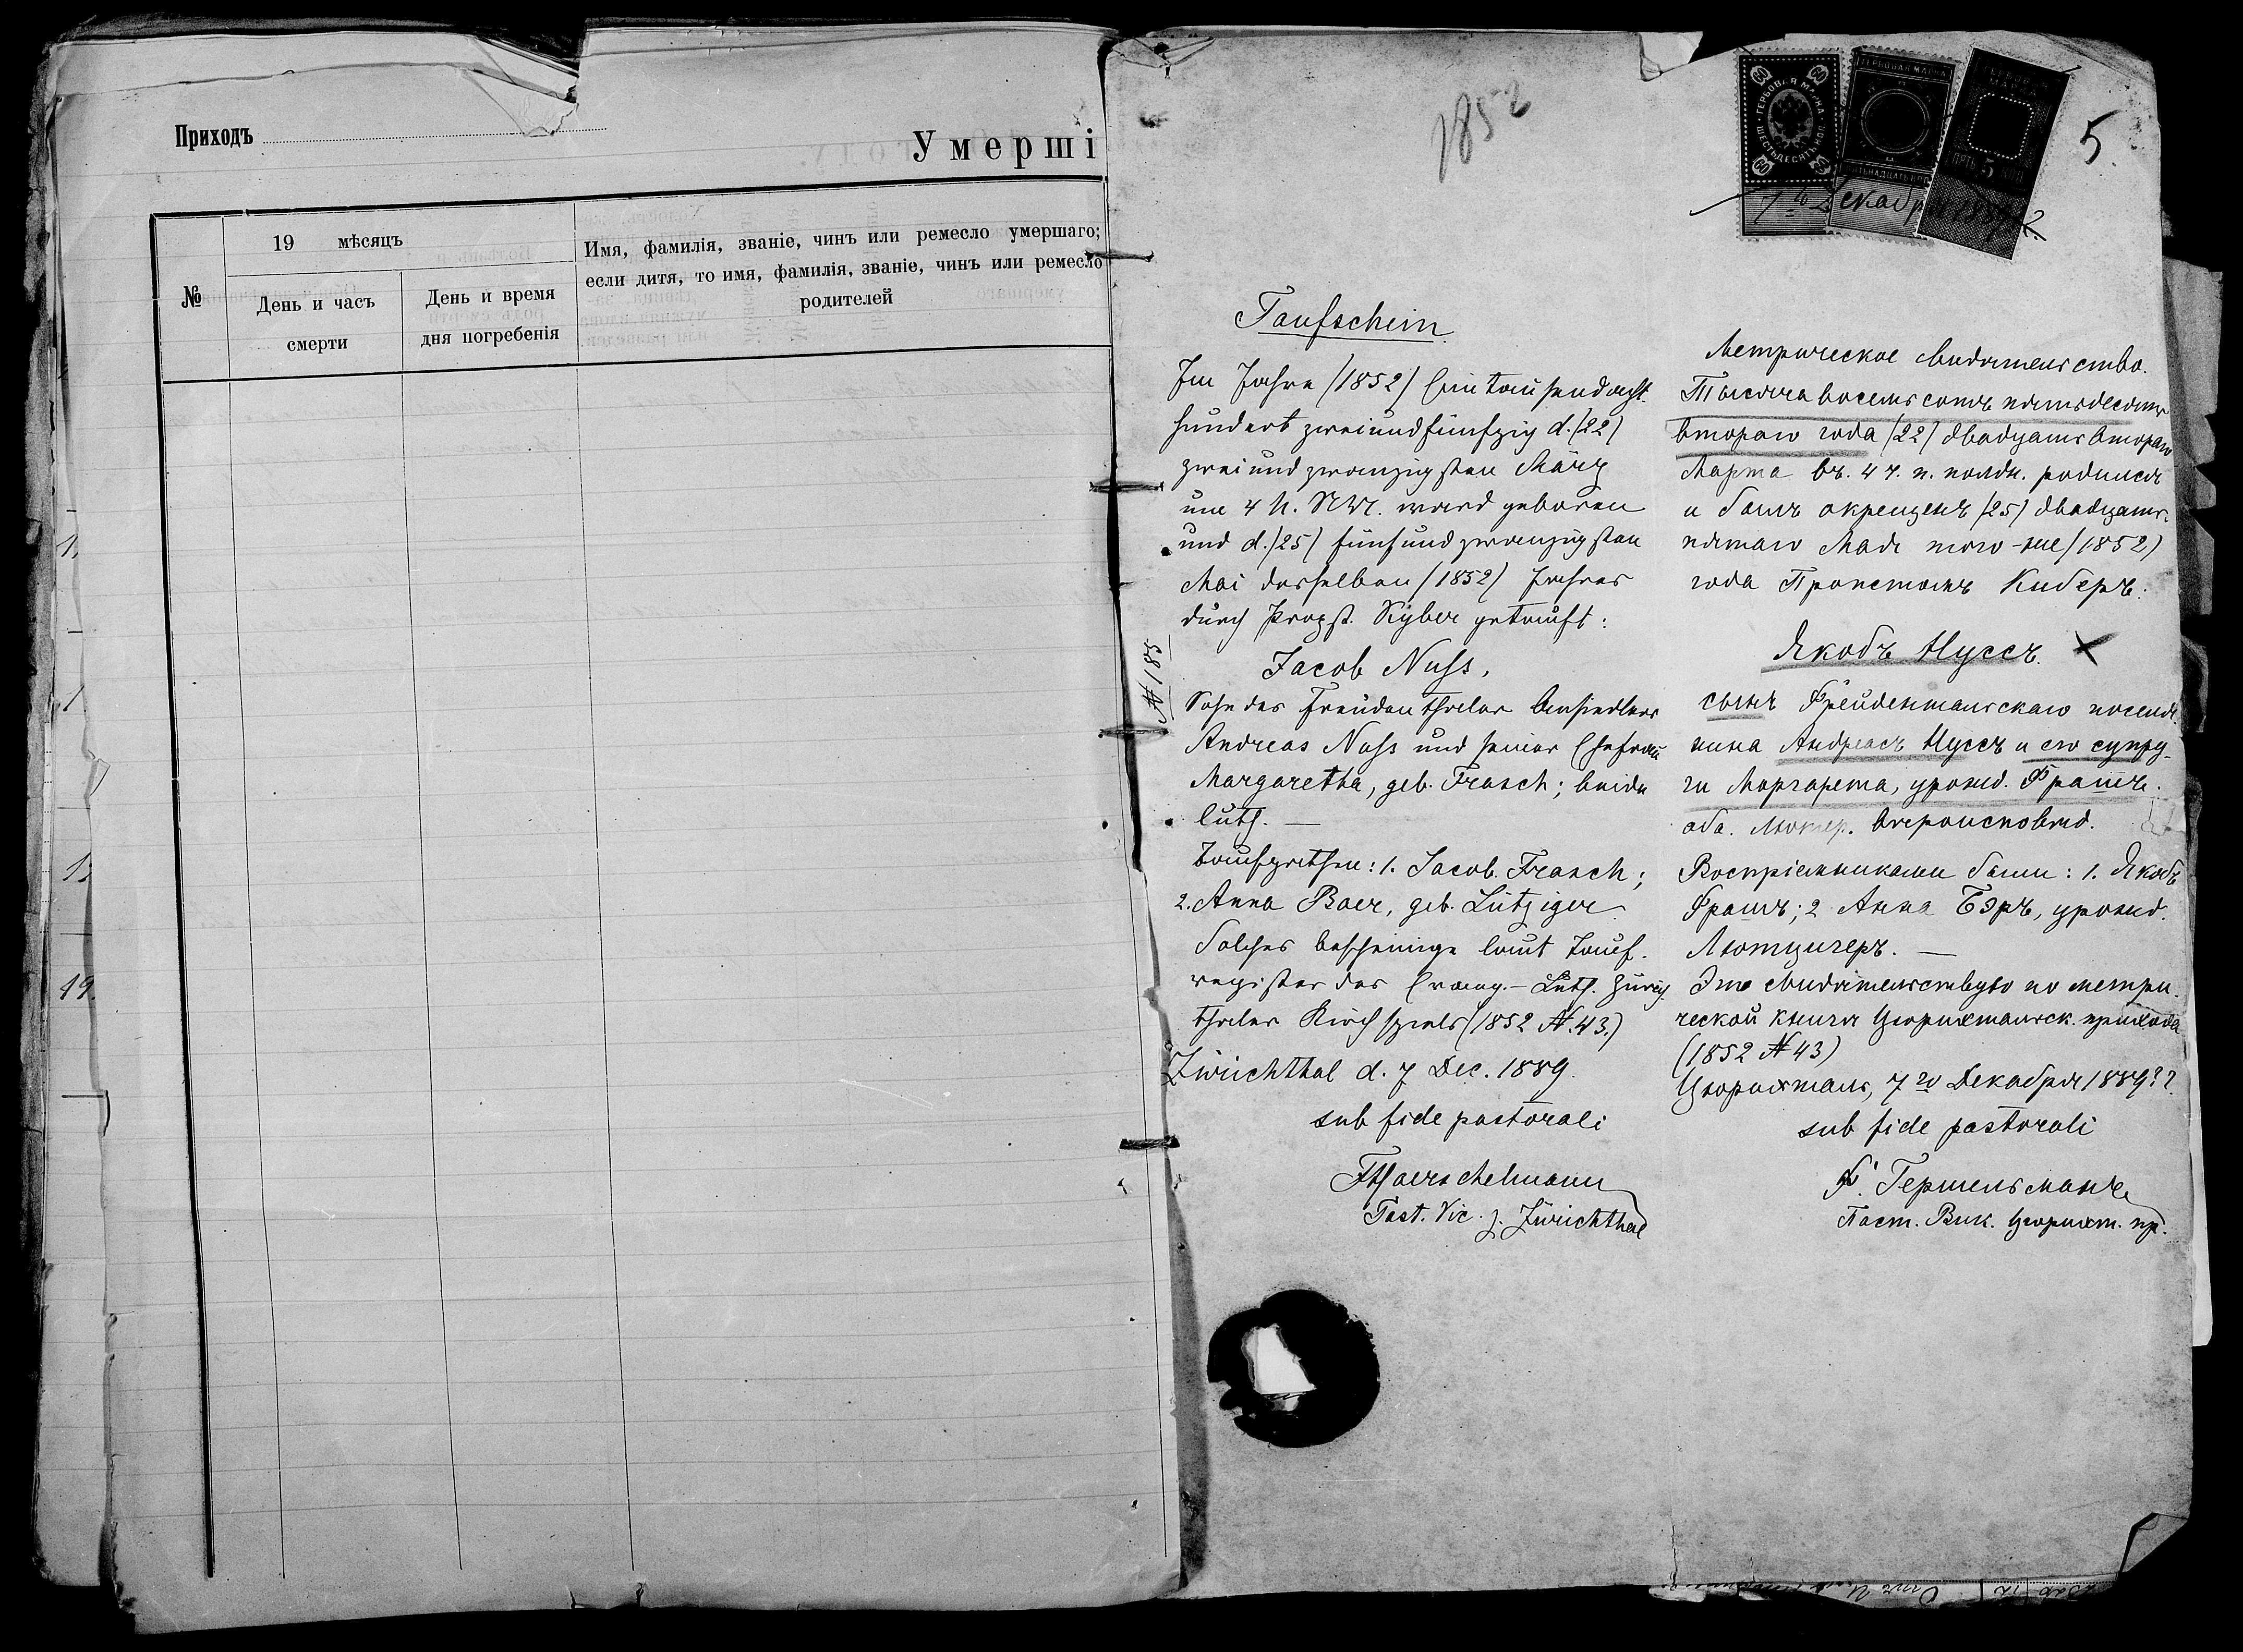 Приходъ
Умерші
№
19 мѣсяцъ
День и часъ
смерти
День и время
дня погребенія
Имя, фамилія, званіе, чинъ или ремесло умершаго;
если дитя, то имя, фамилія, званіе, чинъ или ремесло
родителей
1,
1
1,
19.
1852
5.
ГЕРБОВАЯ МАРКА
ШЕСТЬДЕСЯТЪ КОП.
60
60
60
60
ГЕРБОВАЯ МАРКА
ПЯТЬНАДЦАТЬ КОП.
5 КОП
7го Декабря 1889 г.
№ 185
Taufschein.
Im Jahre (1852) Eintausendacht-
hundert zweiundfünfzig d. (22)
zweiundzwanzigsten März
um 4 U. NM. ward geboren
und d. (25) fünfundzwanzigsten
Mai desselben (1852) Jahres
durch Propst. Kyber getauft:
Jacob Nuss,
Sohn des Freudenthaler Ansiedlers
Andreas Nuss und seiner Ehefrau
Margaretha, geb. Frasch; beide
luth. —
Taufpathen: 1. Jacob. Frasch;
2. Anna Baer, geb. Lützinger.
Solches bescheinige laut Tauf-
register des Evang.-Luth. Zürich-
thaler Kirchspiels (1852 N. 43.)
Zürichthal d. 7 Dec. 1889.
sub fide pastorali
F Haerschelmann
Past. Vic. z. Zürichthal
Метрическое свидѣтельство.
Тысяча восемьсотъ пятьдесятъ
втораго года (22) двадцать втораго
Марта въ. 4 ч. п. полдн. родился
и былъ окрещенъ (25) двадцать-
пятаго Мая того-же (1852)
года Пропстомъ Киберъ:
Якобъ Нуссъ. ×
сынъ Фрейдентальскаго поселя-
нина Андреасъ Нуссъ и его супру-
ги Маргарета, урожд. Фрашъ.
оба. Лютер. вѣроисповѣд.
Воспріемниками были: 1. Якобъ
Фрашъ; 2 Анна Бэръ, урожд.
Лютцигеръ. —
Это свидѣтельствую по метри-
ческой книгѣ Цюрихтальск. прихода
(1852 № 43)
Цюрихталь, 7го Декабря 1889 г.
sub fide pastorali
Ф. Гершельманъ
Паст. Вик. Цюрихт. пр.